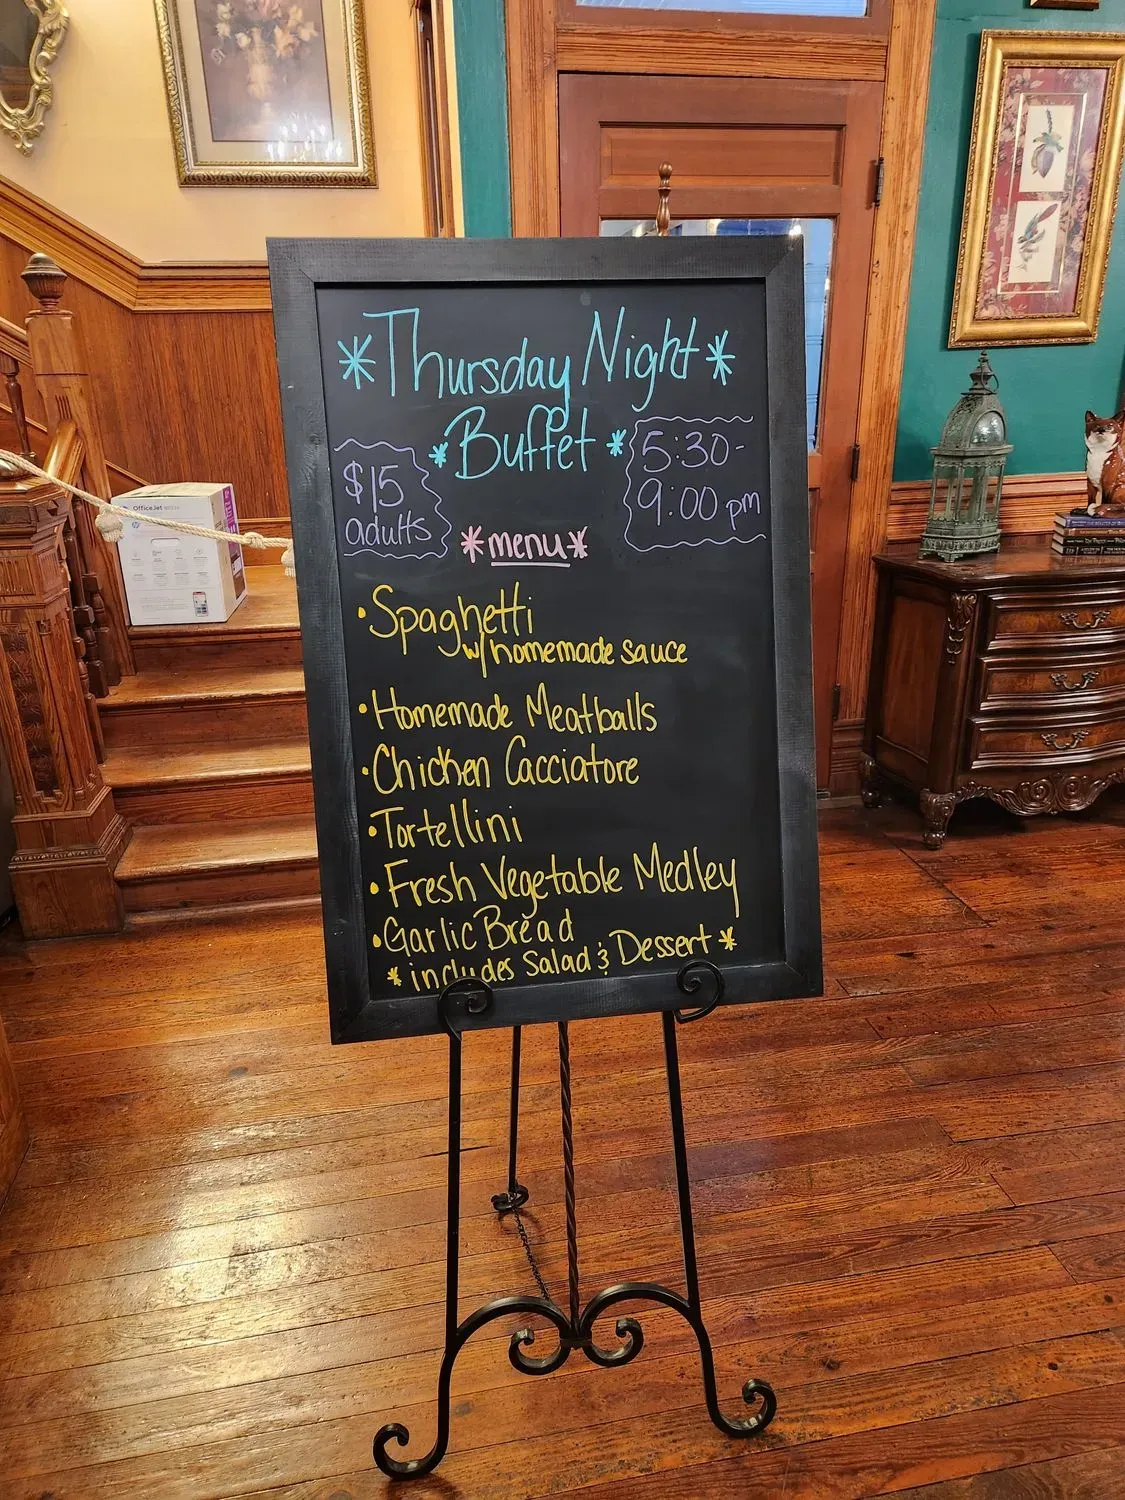 *Thursday Night*
*Buffet*
$15
adults
5:30-
9:00 pm
*menu*
• Spaghetti
w/homemade sauce
• Homemade Meatballs
• Chicken Cacciatore
• Tortellini
• Fresh Vegetable Medley
• Garlic Bread
* includes Salad & Dessert *
OfficeJet
hp